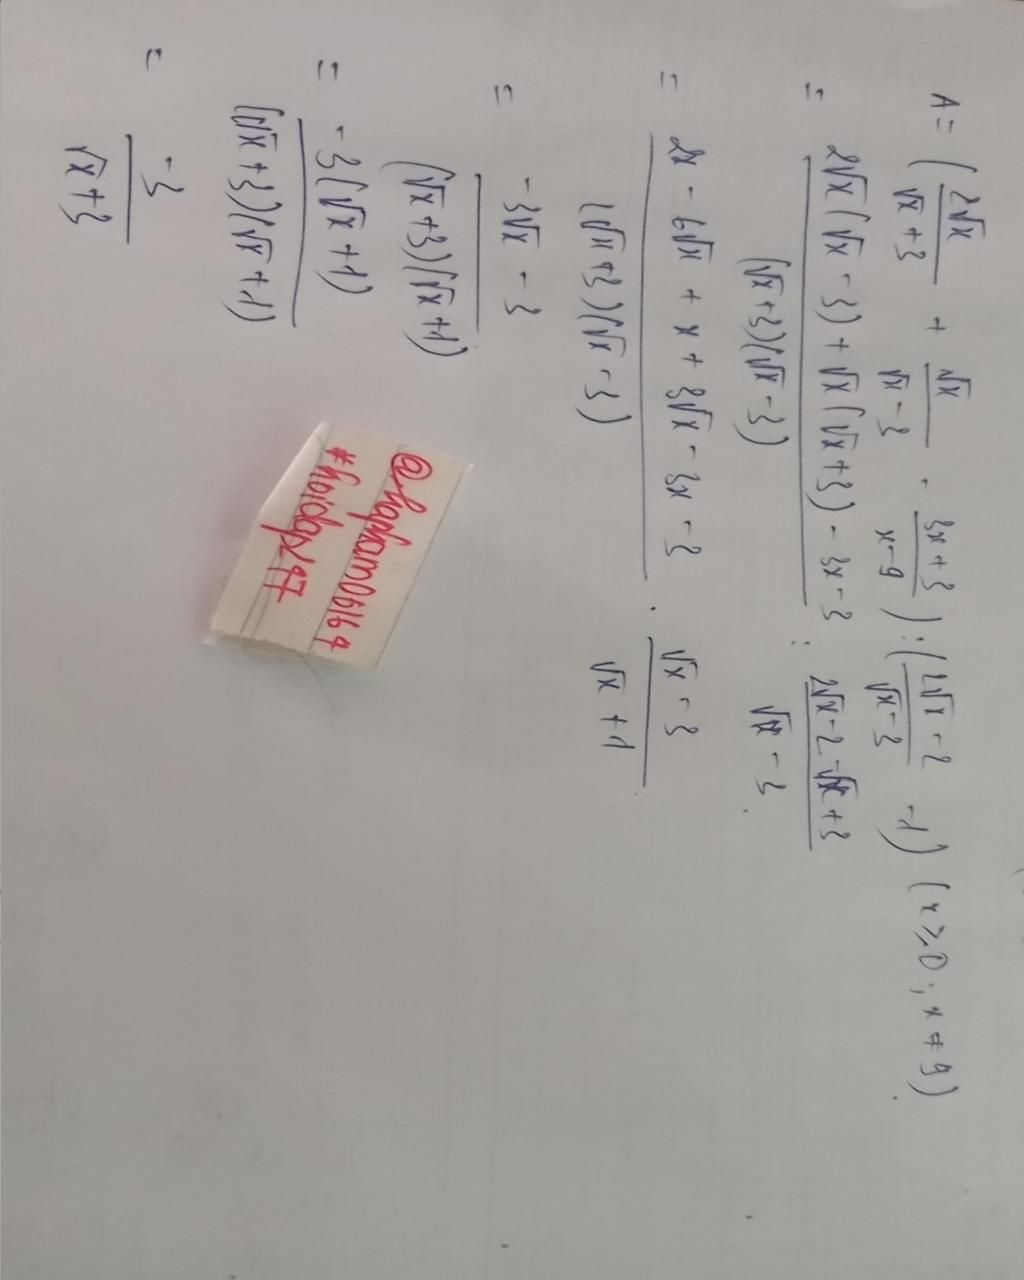 A = (2√x/(√x + 3) + √x/(√x - 3) - (3x + 3)/(x - 9)) : ((2√x - 2)/(√x - 3) - 1) (x ≥ 0 ; x ≠ 9)
= (2√x(√x - 3) + √x(√x + 3) - 3x - 3)/((√x + 3)(√x - 3)) : (2√x - 2 - √x + 3)/(√x - 3)
= (2x - 6√x + x + 3√x - 3x - 3)/((√x + 3)(√x - 3)) . (√x - 3)/(√x + 1)
= (-3√x - 3)/((√x + 3)(√x + 1))
= -3(√x + 1)/((√x + 3)(√x + 1))
= -3/(√x + 3)
#hoidap247